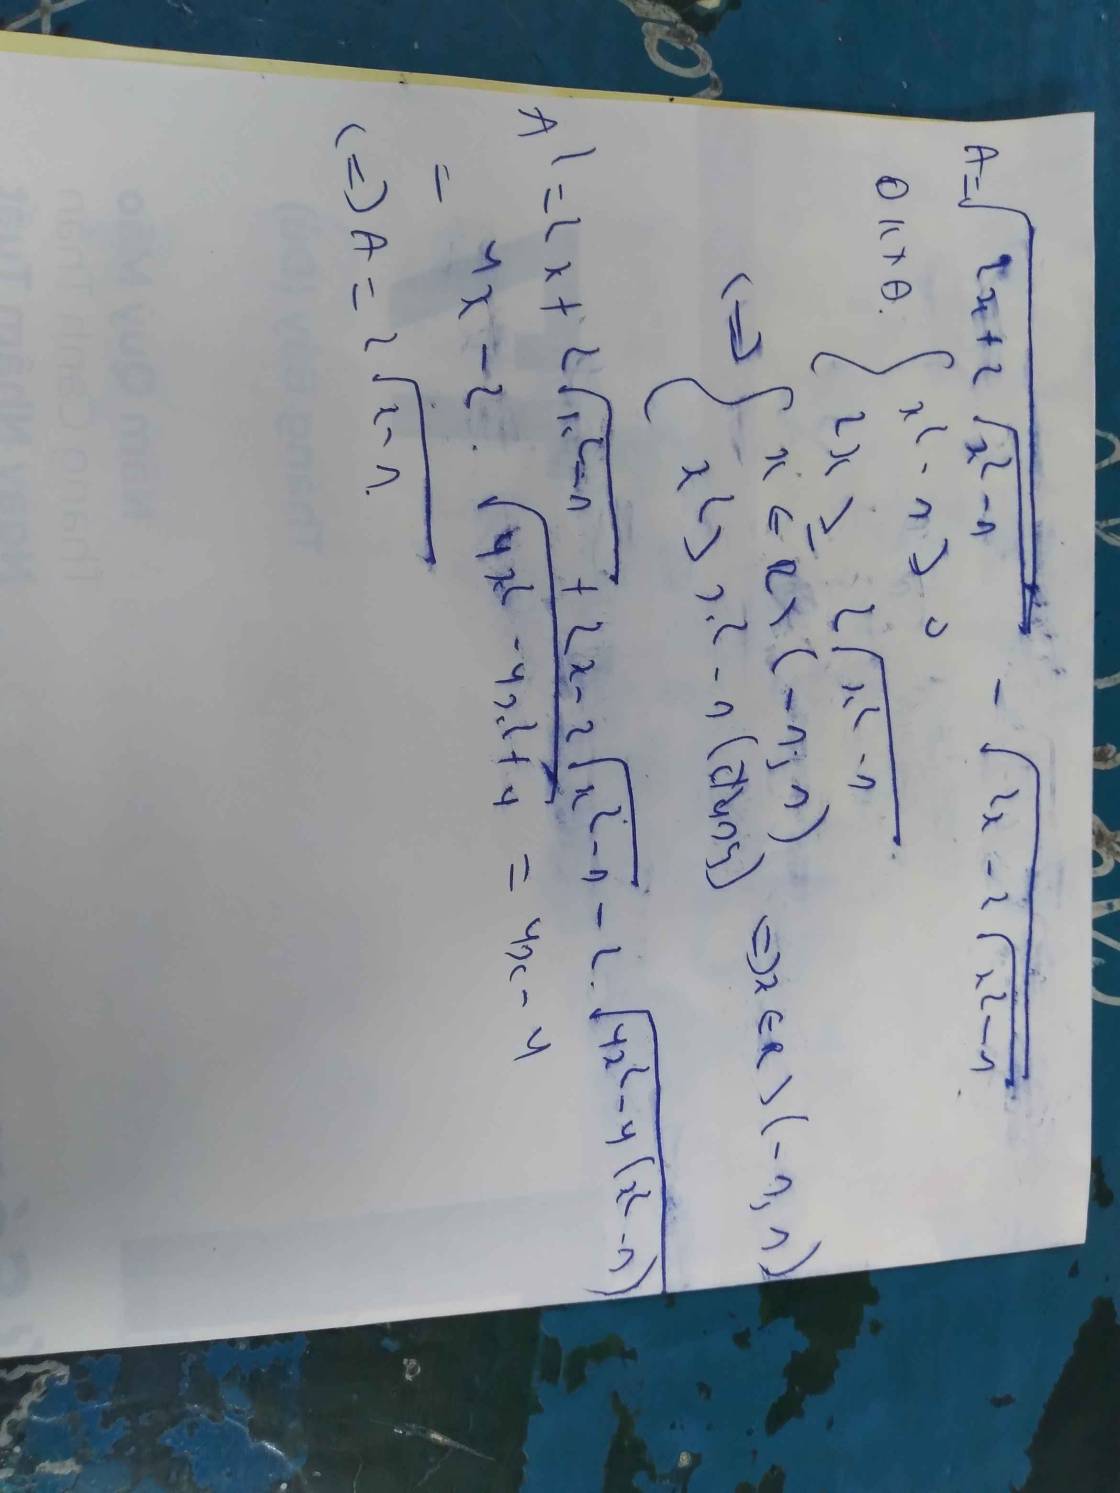 A = √(2x + 2√(x² - 1)) - √(2x - 2√(x² - 1))
ĐKXĐ: { x² - 1 ≥ 0
{ 2x ≥ 2√(x² - 1)
(=) { x ∈ R \ (-1, 1)
{ x² ≥ x² - 1 (đúng) (=) x ∈ R \ (-1, 1)
A² = 2x + 2√(x² - 1) + 2x - 2√(x² - 1) - 2.√(4x² - 4(x² - 1))
= 4x - 2.√(4x² - 4x² + 4) = 4x - 4
(=) A = 2√(x - 1)